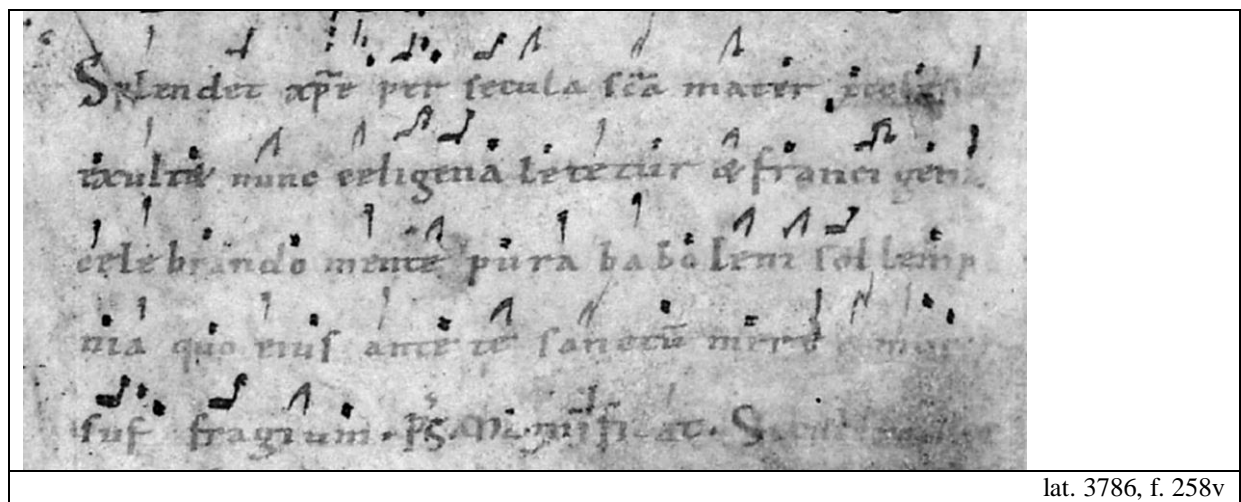 Splendet xp̄e per secula sc̄a mater ecclesia
exultet nunc celigena letetur & francigena
celebrando mente pura baboleni sollemp
nia quo eius ante te sanctū mere
suffragium. P̄s. Magnificat. S
lat. 3786, f. 258v